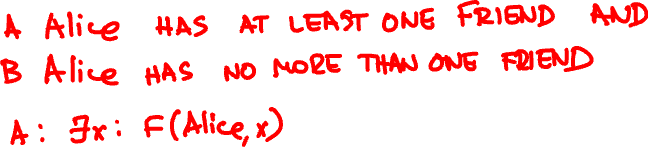 A Alice HAS AT LEAST ONE FRIEND AND
B Alice HAS NO MORE THAN ONE FRIEND
A: ∃x: F(Alice,x)